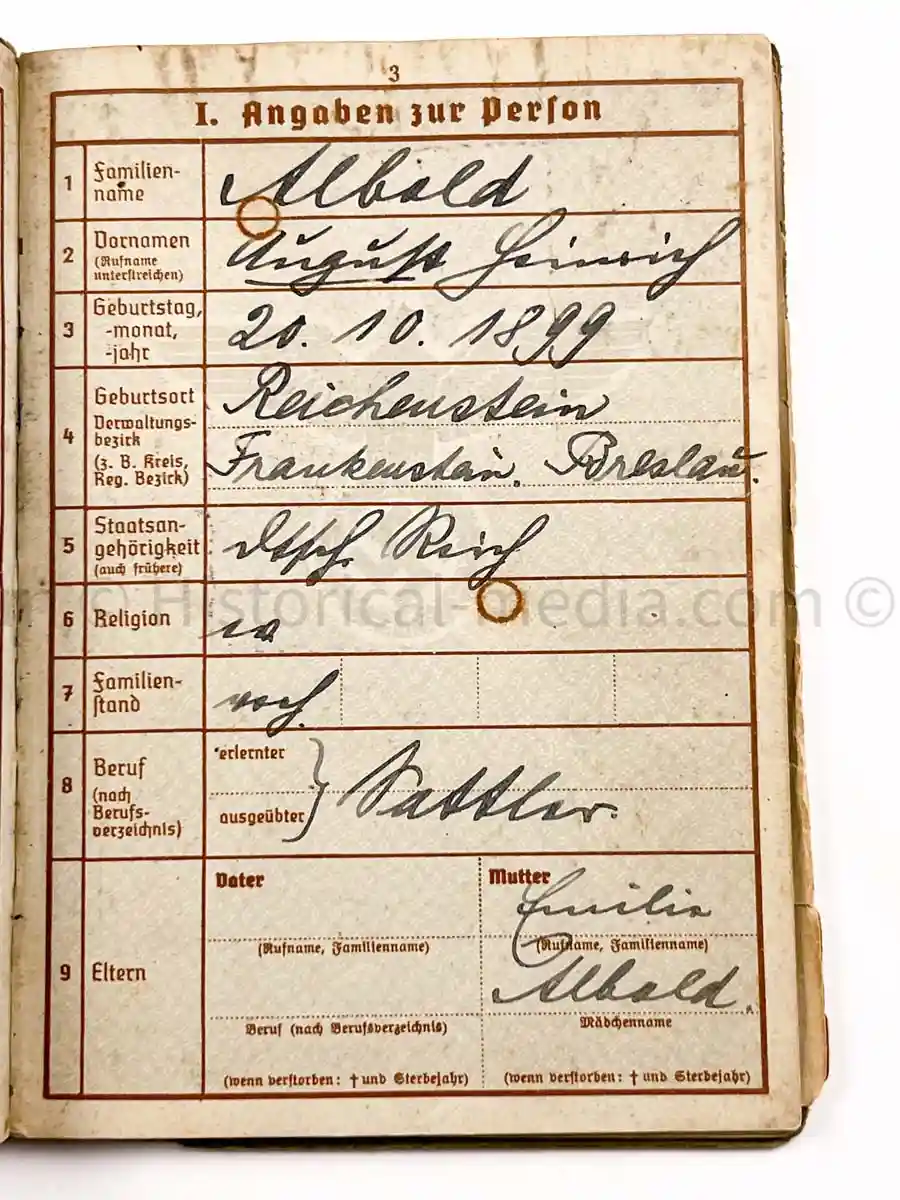 3
I. Angaben zur Person
1 Familien-
name
Albold
2 Vornamen
(Rufname
unterstreichen)
August Heinrich
3 Geburtstag,
-monat,
-jahr
20. 10. 1899
4 Geburtsort
Verwaltungs-
bezirk
(z. B. Kreis,
Reg. Bezirk)
Reichenstein
Frankenstein. Breslau.
5 Staatsan-
gehörigkeit
(auch frühere)
Dtsch. Reich
© Historical-media.com ©
6 Religion
7 Familien-
stand
8 Beruf
(nach
Berufs-
verzeichnis)
erlernter
ausgeübter
Sattler.
9 Eltern
Vater
(Rufname, Familienname)
Beruf (nach Berufsverzeichnis)
(wenn verstorben: † und Sterbejahr)
Mutter
Emilie
(Rufname, Familienname)
Albold.
Mädchenname
(wenn verstorben: † und Sterbejahr)